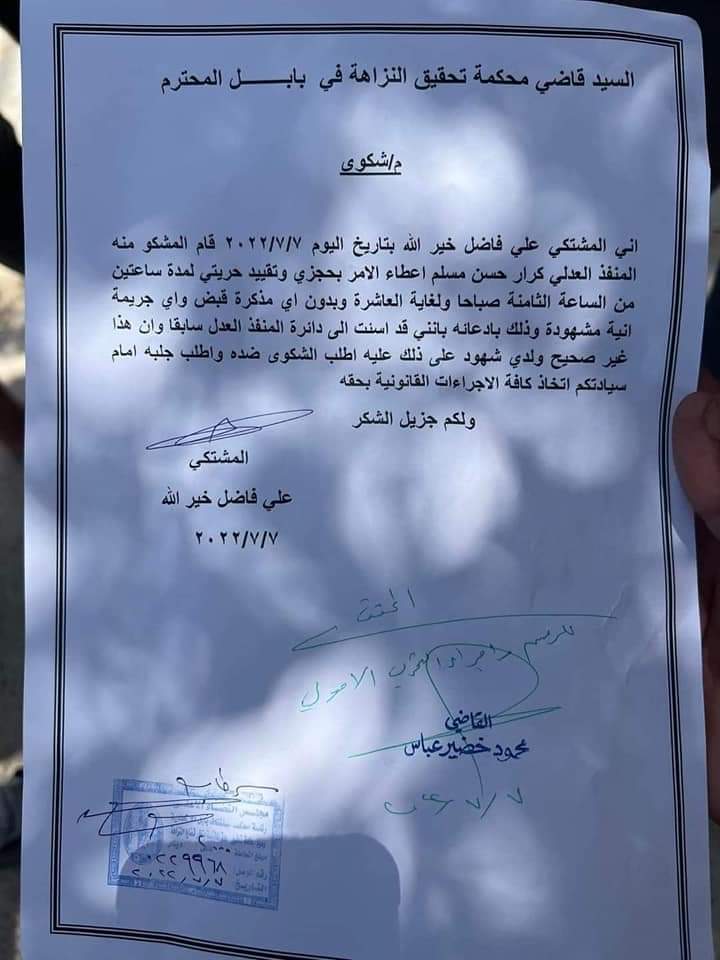 السيد قاضي محكمة تحقيق النزاهة في بابـــــل المحترم
م/شكوى
اني المشتكي علي فاضل خير الله بتاريخ اليوم ٢٠٢٢/٧/٧ قام المشكو منه
المنفذ العدلي كرار حسن مسلم اعطاء الامر بحجزي وتقييد حريتي لمدة ساعتين
من الساعة الثامنة صباحا ولغاية العاشرة وبدون اي مذكرة قبض واي جريمة
انية مشهودة وذلك بادعائه بانني قد اسئت الى دائرة المنفذ العدل سابقا وان هذا
غير صحيح ولدي شهود على ذلك عليه اطلب الشكوى ضده واطلب جلبه امام
سيادتكم اتخاذ كافة الاجراءات القانونية بحقه
ولكم جزيل الشكر
المشتكي
علي فاضل خير الله
٢٠٢٢/٧/٧
للرسم
القاضي
محمود خضير عباس
٧/٧
٠٢٢٩٩٦٨
٢٠٢٢/٧/٧